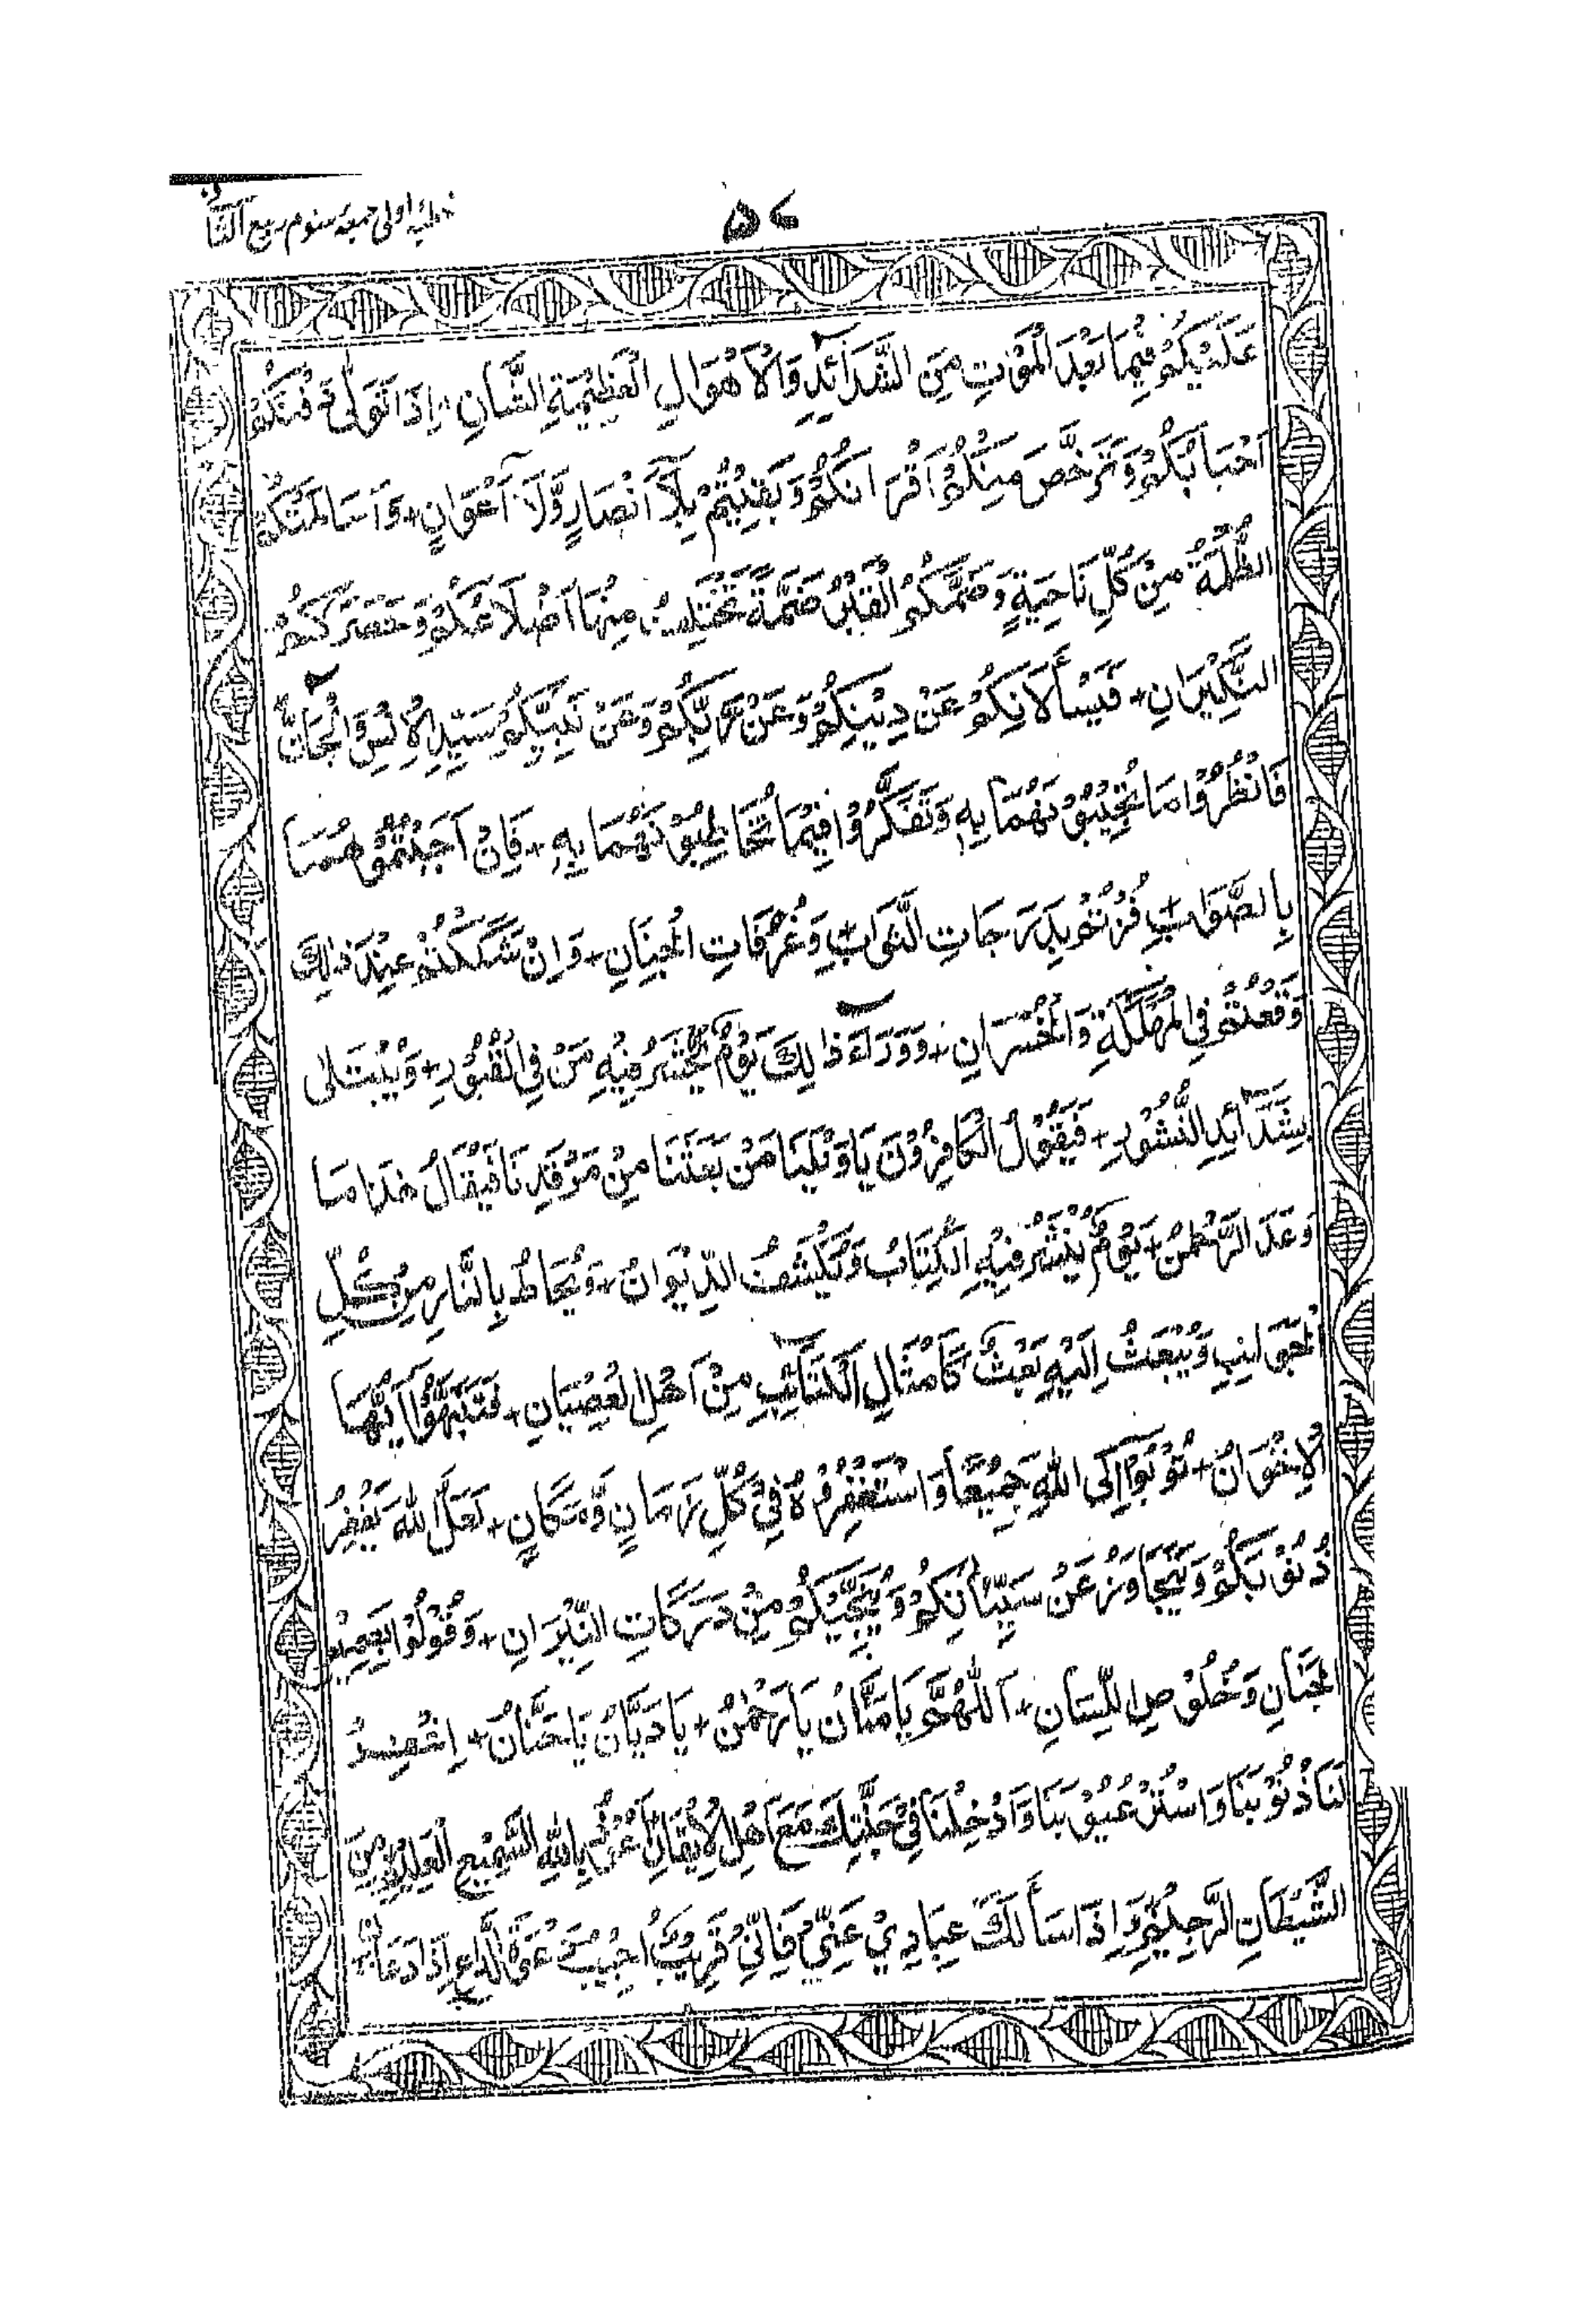 ۵۷
خطبۂ اولی جمعۂ سوم ربیع الثانی
عَلَيْكُمْ فِيْمَا بَعْدَ الْمَوْتِ مِنَ الشَّدَآئِدِ وَالْاَهْوَالِ الْعَظِيْمَةِ الشَّانِ + اِذَا تَوَلّٰى عَنْكُمْ
اَحْبَابُكُمْ وَتَرَخَّصَ مِنْكُمْ اَقْرَانُكُمْ وَبَقِيْتُمْ بِلَآ اَنْصَارٍ وَّلَآ اَعْوَانٍ + وَاَسَالَمَتْكُمُ
الظُّلْمَةُ مِنْ كُلِّ نَاحِيَةٍ وَضَمَّكُمُ الْقَبْرُ ضَمَّةً تَخْتَلِفُ مِنْهَا اَضْلَاعُكُمْ وَحَضَرَكُمُ
النَّكِيْرَانِ + فَيَسْأَلَانِكُمْ عَنْ دِيْنِكُمْ وَعَنْ رَّبِّكُمْ وَعَنْ نَبِيِّكُمْ سَيِّدِ الْاِنْسِ وَالْجَآنِّ
فَانْظُرُوْا مَا تُجِيْبُوْنَهُمَا بِهٖ وَتَفَكَّرُوْا فِيْمَا تُخَاطِبُوْنَهُمَا بِهٖ + فَاِنْ اَجَبْتُمُوْهُمَا
بِالصَّوَابِ + فُزْتُمْ بِدَرَجَاتِ الثَّوَابِ + وَغُرُفَاتِ الْجِنَانِ + وَاِنْ شَكَكْتُمْ عِنْدَ ذٰلِكَ
وَقَعْتُمْ فِي الْمَهْلَكَةِ وَالْخُسْرَانِ + وَوَرَآءَ ذٰلِكَ يَوْمٌ يُّحْشَرُ فِيْهِ مَنْ فِي الْقُبُوْرِ + وَيُبْتَلٰى
بِشَدَآئِدِ النُّشُوْرِ + فَيَقُوْلُ الْكَافِرُوْنَ يَا وَيْلَنَا مَنْ بَعَثَنَا مِنْ مَرْقَدِنَا فَيُقَالُ هٰذَا مَا
وَعَدَ الرَّحْمٰنُ + يَوْمٌ يُنْشَرُ فِيْهِ الْكِتَابُ وَيُكْشَفُ الدِّيْوَانُ + وَيُحَاطُ بِالنَّارِ مِنْ كُلِّ
الْجَوَانِبِ وَيُبْعَثُ اِلَيْهِ بَعْثٌ كَاَمْثَالِ الْكَتَآئِبِ مِنْ اَهْلِ الْعِصْيَانِ + فَتَنَبَّهُوْا اَيُّهَا
الْاِخْوَانُ + تُوْبُوْا اِلَى اللهِ جَمِيْعًا وَاسْتَغْفِرُوْهُ فِيْ كُلِّ زَمَانٍ وَّمَكَانٍ + لَعَلَّ اللهَ يَغْفِرُ
ذُنُوْبَكُمْ وَيَتَجَاوَزُ عَنْ سَيِّئَاتِكُمْ وَيُنَجِّيْكُمْ مِنْ دَرَكَاتِ النِّيْرَانِ + وَقُوْلُوْا بِصَمِيْمِ
الْجَنَانِ وَخُلُوْصِ اللِّسَانِ + اَللّٰهُمَّ يَا مَنَّانُ يَا رَحْمٰنُ + يَا دَيَّانُ يَا حَنَّانُ + اِغْفِرْ
لَنَا ذُنُوْبَنَا وَاسْتُرْ عُيُوْبَنَا وَاَدْخِلْنَا فِيْ جَنَّتِكَ مَعَ اَهْلِ الْاِيْقَانِ اَعُوْذُ بِاللهِ السَّمِيْعِ الْعَلِيْمِ مِنَ
الشَّيْطَانِ الرَّجِيْمِ وَاِذَا سَأَلَكَ عِبَادِيْ عَنِّيْ فَاِنِّيْ قَرِيْبٌ اُجِيْبُ دَعْوَةَ الدَّاعِ اِذَا دَعَانِ